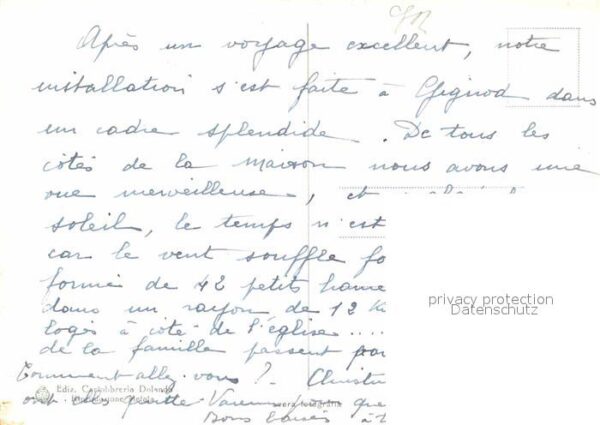 Après un voyage excellent, notre
installation s'est faite à Gignod dans
un cadre splendide. De tous les
côtés de la maison nous avons une
vue merveilleuse, et
soleil, le temps n'est
car le vent souffle fo
formée de 42 petits hame
dans un rayon de 12 K
logés à côté de l'église ....
de la famille passent par
Comment allez-vous? - Christi
Ediz. Cartolibreria
ont quitté que
vera fotografia
Bons baisers à t
privacy protection
Datenschutz